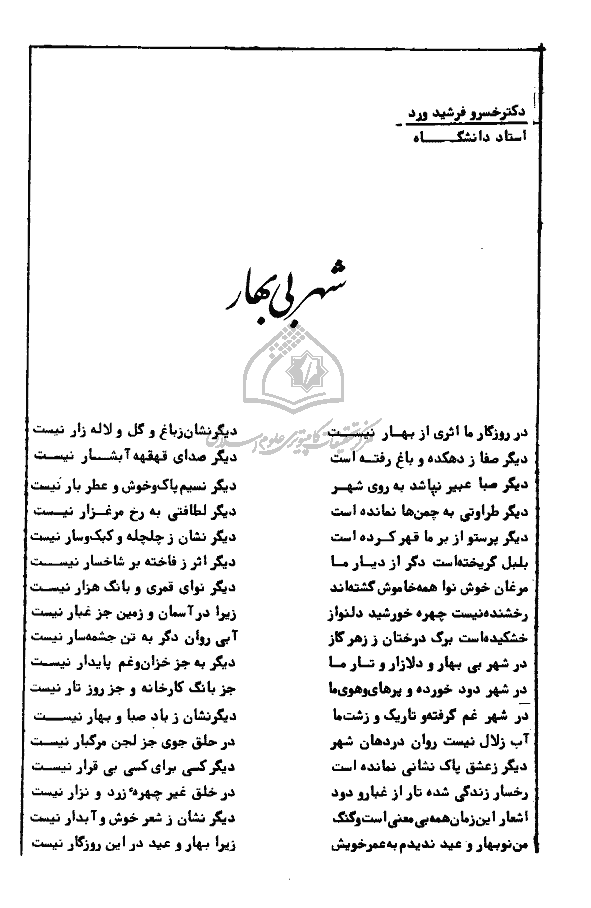 دکتر خسرو فرشید ورد
استاد دانشگاه
شهر بی بهار
در روزگار ما اثری از بهار نیست دیگر نشان زباغ و گل و لاله زار نیست
دیگر صفا ز دهکده و باغ رفته است دیگر صدای قهقهه آبشار نیست
دیگر صبا عبیر نپاشد به روی شهر دیگر نسیم پاک و خوش و عطر بار نیست
دیگر طراوتی به چمن‌ها نمانده است دیگر لطافتی به رخ مرغزار نیست
دیگر پرستو از بر ما قهر کرده است دیگر نشان ز چلچله و کبک و سار نیست
بلبل گریخته‌است دگر از دیار ما دیگر اثر ز فاخته بر شاخسار نیست
مرغان خوش نوا همه خاموش گشته‌اند دیگر نوای قمری و بانگ هزار نیست
رخشنده نیست چهره خورشید دلنواز زیرا در آسمان و زمین جز غبار نیست
خشکیده‌است برگ درختان ز زهر گاز آبی روان دگر به تن چشمه‌سار نیست
در شهر بی بهار و دلازار و تار ما دیگر به جز خزان و غم پایدار نیست
در شهر دود خورده و پرهای‌وهوی‌ما جز بانگ کارخانه و جز روز تار نیست
در شهر غم گرفته‌و تاریک و زشت‌ما دیگر نشان ز باد صبا و بهار نیست
آب زلال نیست روان دردهان شهر در حلق جوی جز لجن مرگبار نیست
دیگر زعشق پاک نشانی نمانده است دیگر کسی برای کسی بی قرار نیست
رخسار زندگی شده تار از غبارو دود در خلق غیر چهرهٔ زرد و نزار نیست
اشعار این زمان همه بی معنی است و گنگ دیگر نشان ز شعر خوش و آبدار نیست
من نوبهار و عید ندیدم به عمر خویش زیرا بهار و عید در این روزگار نیست
مرکز تحقیقات کامپیوتری علوم اسلامی